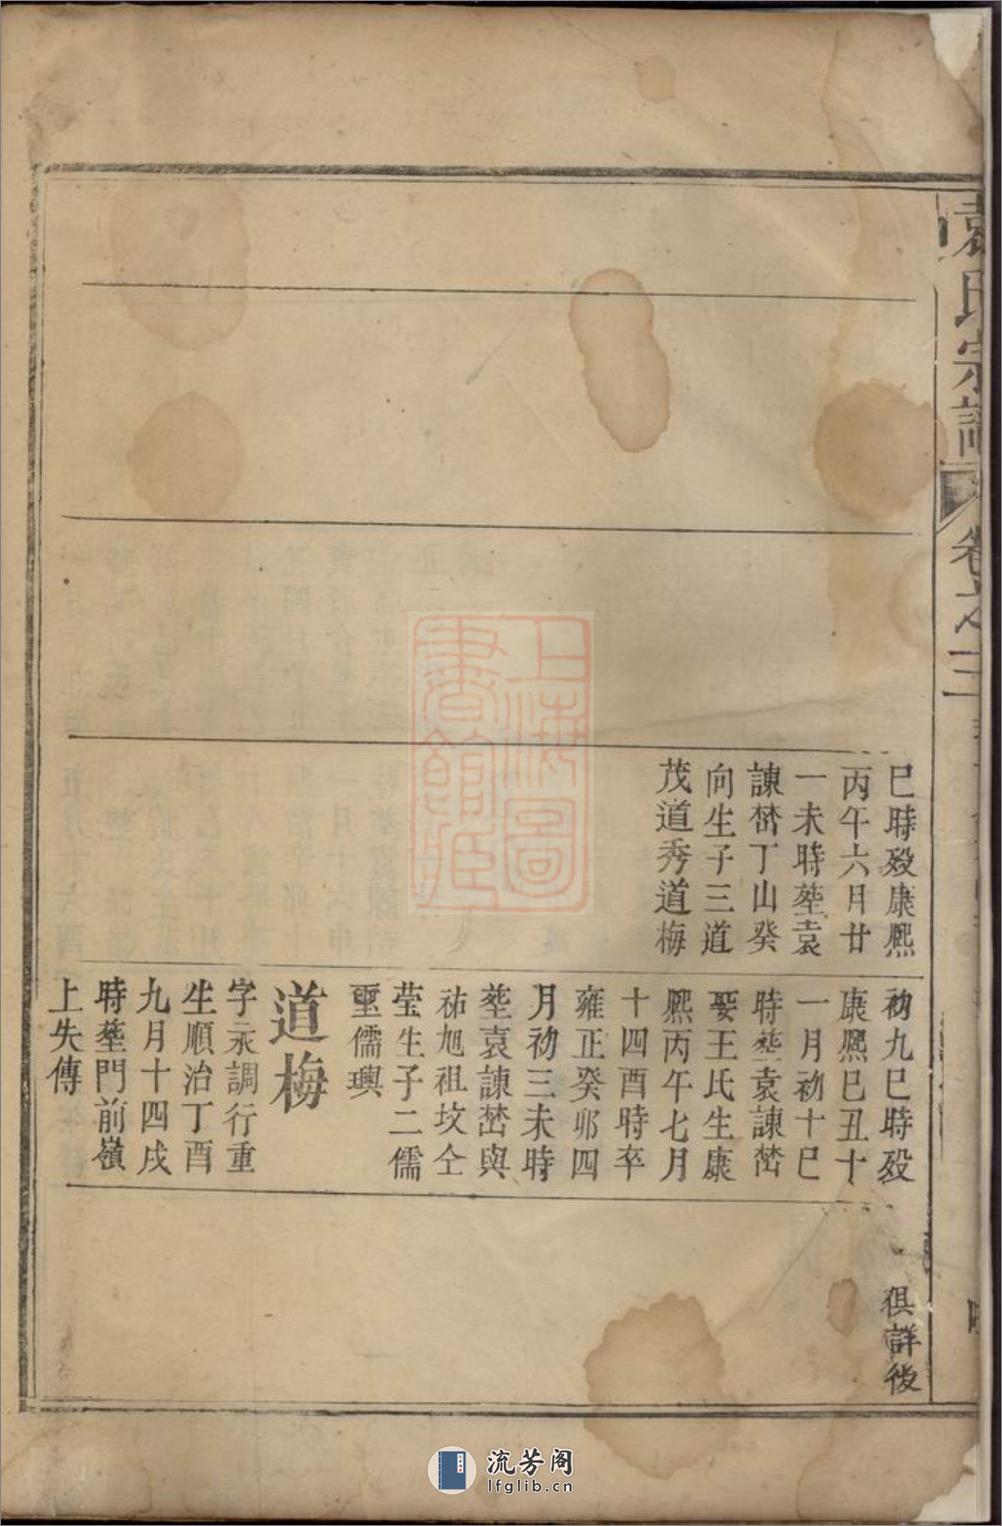 袁氏宗譜
卷之二
巳時殁康熈
丙午六月廿
一未時塟袁
諌嶅丁山癸
向生子三道
茂道秀道梅
初九巳時殁
康熈已丑十
一月初十巳
時塟袁諌嶅
娶王氏生康
熈丙午七月
十四酉時卒
雍正癸卯四
月初三未時
塟袁諌嶅與
祐旭祖坟仝
茔生子二儒
璽儒璵
道梅
字永調行重
生順治丁酉
九月十四戌
時塟門前嶺
上失傳
俱詳後
上海圖
書館藏
流芳阁
lfglib.cn